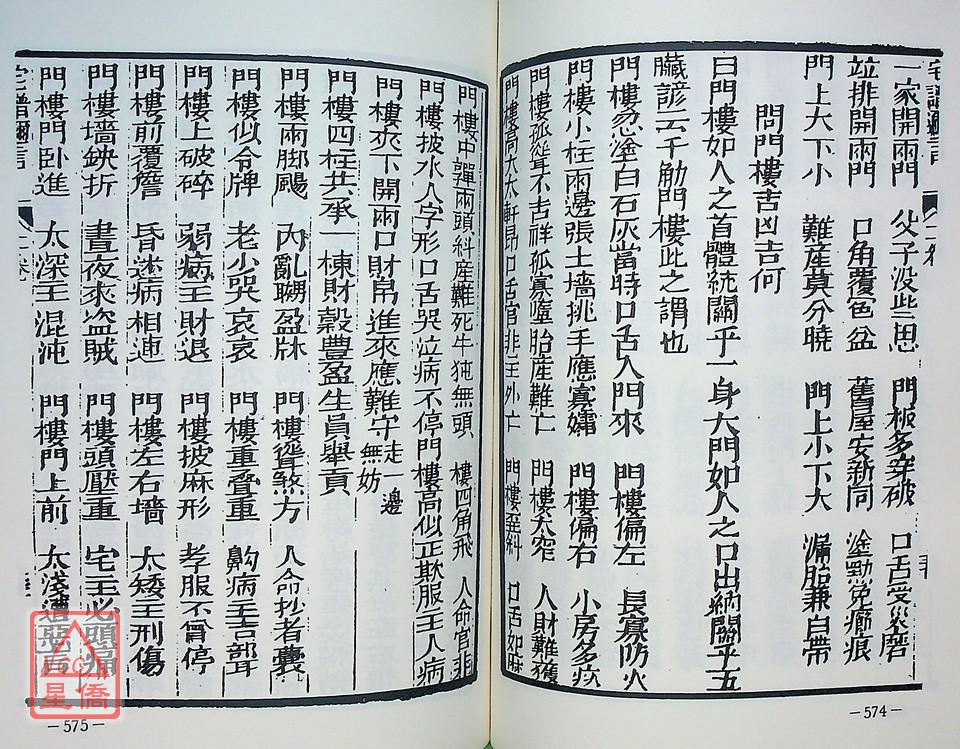 一家開兩門 父子没些思 門板多穿破 口舌受災磨
竝排開兩門 口角覆色盆 舊屋安新同 塗勤免瘢痕
門上大下小 難産莫分曉 門上小下大 漏胎兼白帶
問門樓吉凶吉何
曰門樓如人之首體統關乎一身大門如人之口出納關乎五
臟諺云千觔門樓此之謂也
門樓忽塗白石灰當時口舌入門來 門樓偏左 長寡防火
門樓小柱兩邊張土墻挑手應寡孀 門樓偏右 小房多疾
門樓孤聳不吉祥孤寡墮胎産難亡 門樓太窄 人財難獲
門樓高大太軒昂口舌官非主外亡 門樓歪斜 口舌如麻
二卷
— 574 —
門樓中彈兩頭斜産難死牛㹠無頭 樓四角飛 人命官非
門樓披水人字形口舌哭泣病不停門樓高似正欺服主人病
門樓夾下開兩口財帛進來應難守走一邊無妨
門樓四柱共承一棟財穀豐盈生員舉貢
門樓兩脚颺 內亂嬲盈牀 門樓聳煞方 人命抄者囊
門樓似令牌 老小哭哀哀 門樓重叠重 鼽病主言聾
門樓上破碎 弱病主財退 門樓披麻形 孝服不曾停
門樓前覆簷 昏迷病相連 門樓左右墻 太矮主刑傷
門樓墻鉠折 晝夜來盗賊 門樓頭壓重 宅主必頭痛
門樓門卧進 太深主混沌 門樓門上前 太淺遭惡言
二卷
— 575 —
VCC
星僑